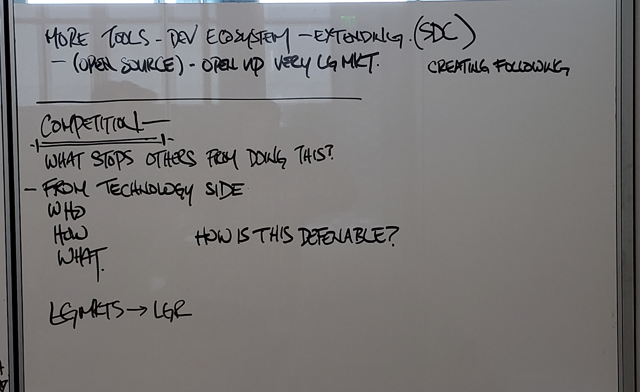 MORE TOOLS - DEV ECOSYSTEM - EXTENDING. (SDC)
- (OPEN SOURCE) - OPEN UP VERY LG MKT. CREATING FOLLOWING
COMPETITION —
WHAT STOPS OTHERS FROM DOING THIS?
- FROM TECHNOLOGY SIDE
WHO
HOW HOW IS THIS DEFENABLE?
WHAT.
LG MKTS → LGR